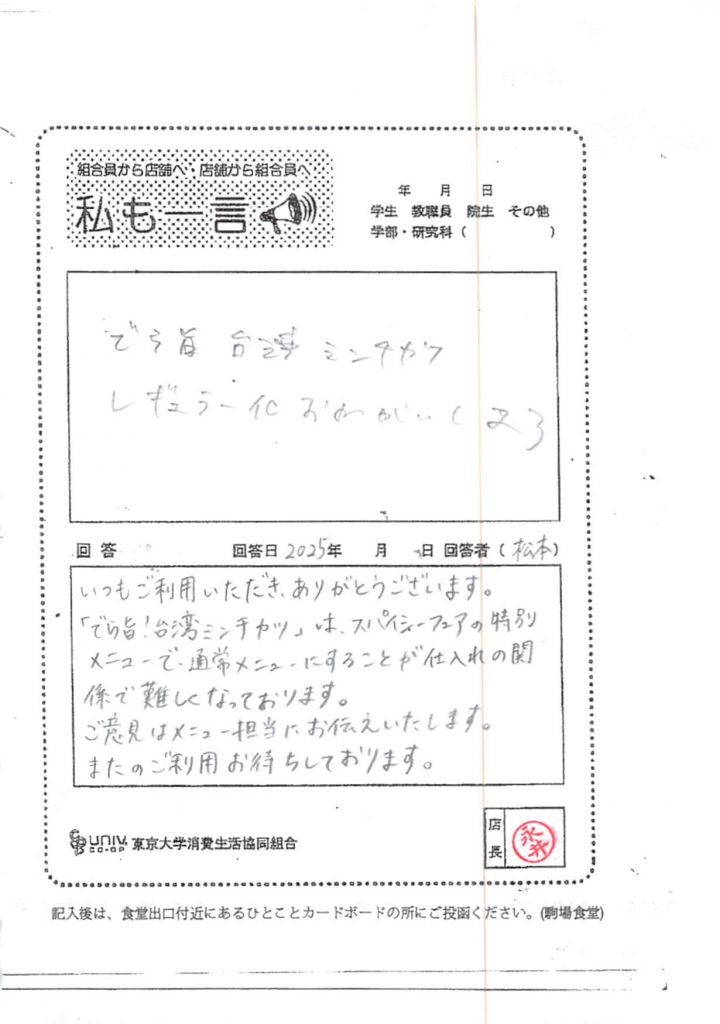 組合員から店舗へ・店舗から組合員へ
私も一言
年 月 日
学生 教職員 院生 その他
学部・研究科 ( )
でら旨 台湾 ミンチカツ
レギュラー化 おねがいします
回答 回答日 2025年 月 日 回答者 (松本)
いつもご利用いただき、ありがとうございます。
「でら旨!台湾ミンチカツ」は、スパイシーフェアの特別
メニューで、通常メニューにすることが仕入れの関
係で難しくなっております。
ご意見はメニュー担当にお伝えいたします。
またのご利用お待ちしております。
UNIV. CO-OP 東京大学消費生活協同組合
店長 永井
記入後は、食堂出口付近にあるひとことカードボードの所にご投函ください。(駒場食堂)